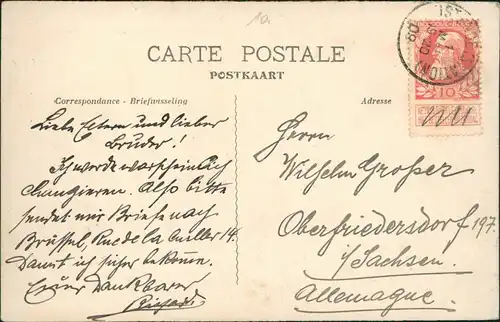 1a
CARTE POSTALE
POSTKAART
Correspondance - Briefwisseling
Adresse
10
Liebe Eltern und lieber
Bruder!
Ich werde warscheinlich
changieren. Also bitte
sendet mir Briefe nach
Brüssel, Rue de la 14.
Damit ich sicher bekomme.
Euer Dankbarer
Richard
Herrn
Wilhelm Großer
Oberfriedersdorf 197.
i/Sachsen.
Allemagne.